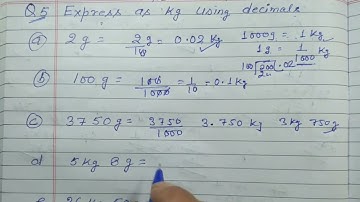 Q.5 Express as Kg using decimals
(a) 2g = 2g/10 = 0.02 Kg 1000g = 1 Kg
1g = 1/1000 Kg
100 200 .02
(b) 100g = 100/1000 = 1/10 = 0.1Kg
(c) 3750g = 3750/1000 3.750 Kg 3Kg 750g
d) 5Kg 8g =